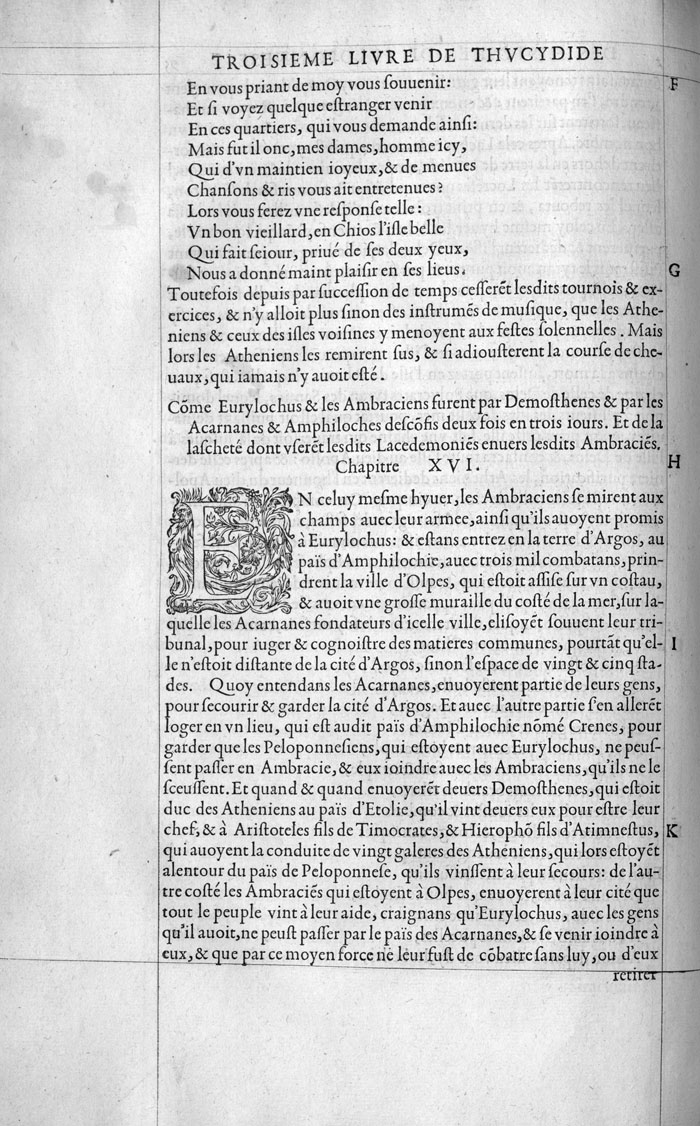 TROISIEME LIVRE DE THVCYDIDE
En vous priant de moy vous ſouuenir: F
Et ſi voyez quelque eſtranger venir
En ces quartiers, qui vous demande ainſi:
Mais fut il onc, mes dames, homme icy,
Qui d'vn maintien ioyeux, & de menues
Chanſons & ris vous ait entretenues?
Lors vous ferez vne reſponſe telle:
Vn bon vieillard, en Chios l'iſle belle
Qui fait ſeiour, priué de ſes deux yeux,
Nous a donné maint plaiſir en ſes lieus. G
Toutefois depuis par ſucceſſion de temps ceſſerẽt leſdits tournois & ex-
ercices, & n'y alloit plus ſinon des inſtrumẽs de muſique, que les Athe-
niens & ceux des iſles voiſines y menoyent aux feſtes ſolennelles. Mais
lors les Atheniens les remirent ſus, & ſi adiouſterent la courſe de che-
uaux, qui iamais n'y auoit eſté.
Cõme Eurylochus & les Ambraciens furent par Demoſthenes & par les
Acarnanes & Amphiloches deſcõfis deux fois en trois iours. Et de la
laſcheté dont vſerẽt leſdits Lacedemoniẽs enuers leſdits Ambraciẽs.
Chapitre XVI. H
EN celuy meſme hyuer, les Ambraciens ſe mirent aux
champs auec leur armee, ainſi qu'ils auoyent promis
à Eurylochus: & eſtans entrez en la terre d'Argos, au
païs d'Amphilochie, auec trois mil combatans, prin-
drent la ville d'Olpes, qui eſtoit aſſiſe ſur vn coſtau,
& auoit vne groſſe muraille du coſté de la mer, ſur la-
quelle les Acarnanes fondateurs d'icelle ville, eliſoyẽt ſouuent leur tri-
bunal, pour iuger & cognoiſtre des matieres communes, pourtãt qu'el- I
le n'eſtoit diſtante de la cité d'Argos, ſinon l'eſpace de vingt & cinq ſta-
des. Quoy entendans les Acarnanes, enuoyerent partie de leurs gens,
pour ſecourir & garder la cité d'Argos. Et auec l'autre partie ſ'en allerẽt
loger en vn lieu, qui eſt audit païs d'Amphilochie nõmé Crenes, pour
garder que les Peloponneſiens, qui eſtoyent auec Eurylochus, ne peuſ-
ſent paſſer en Ambracie, & eux ioindre auec les Ambraciens, qu'ils ne le
ſceuſſent. Et quand & quand enuoyerẽt deuers Demoſthenes, qui eſtoit
duc des Atheniens au païs d'Etolie, qu'il vint deuers eux pour eſtre leur
chef, & à Ariſtoteles fils de Timocrates, & Hierophõ fils d'Atimneſtus, K
qui auoyent la conduite de vingt galeres des Atheniens, qui lors eſtoyẽt
alentour du païs de Peloponneſe, qu'ils vinſſent à leur ſecours: de l'au-
tre coſté les Ambraciẽs qui eſtoyent à Olpes, enuoyerent à leur cité que
tout le peuple vint à leur aide, craignans qu'Eurylochus, auec les gens
qu'il auoit, ne peuſt paſſer par le païs des Acarnanes, & ſe venir ioindre à
eux, & que par ce moyen force ne leur fuſt de cõbatre ſans luy, ou d'eux
retirer